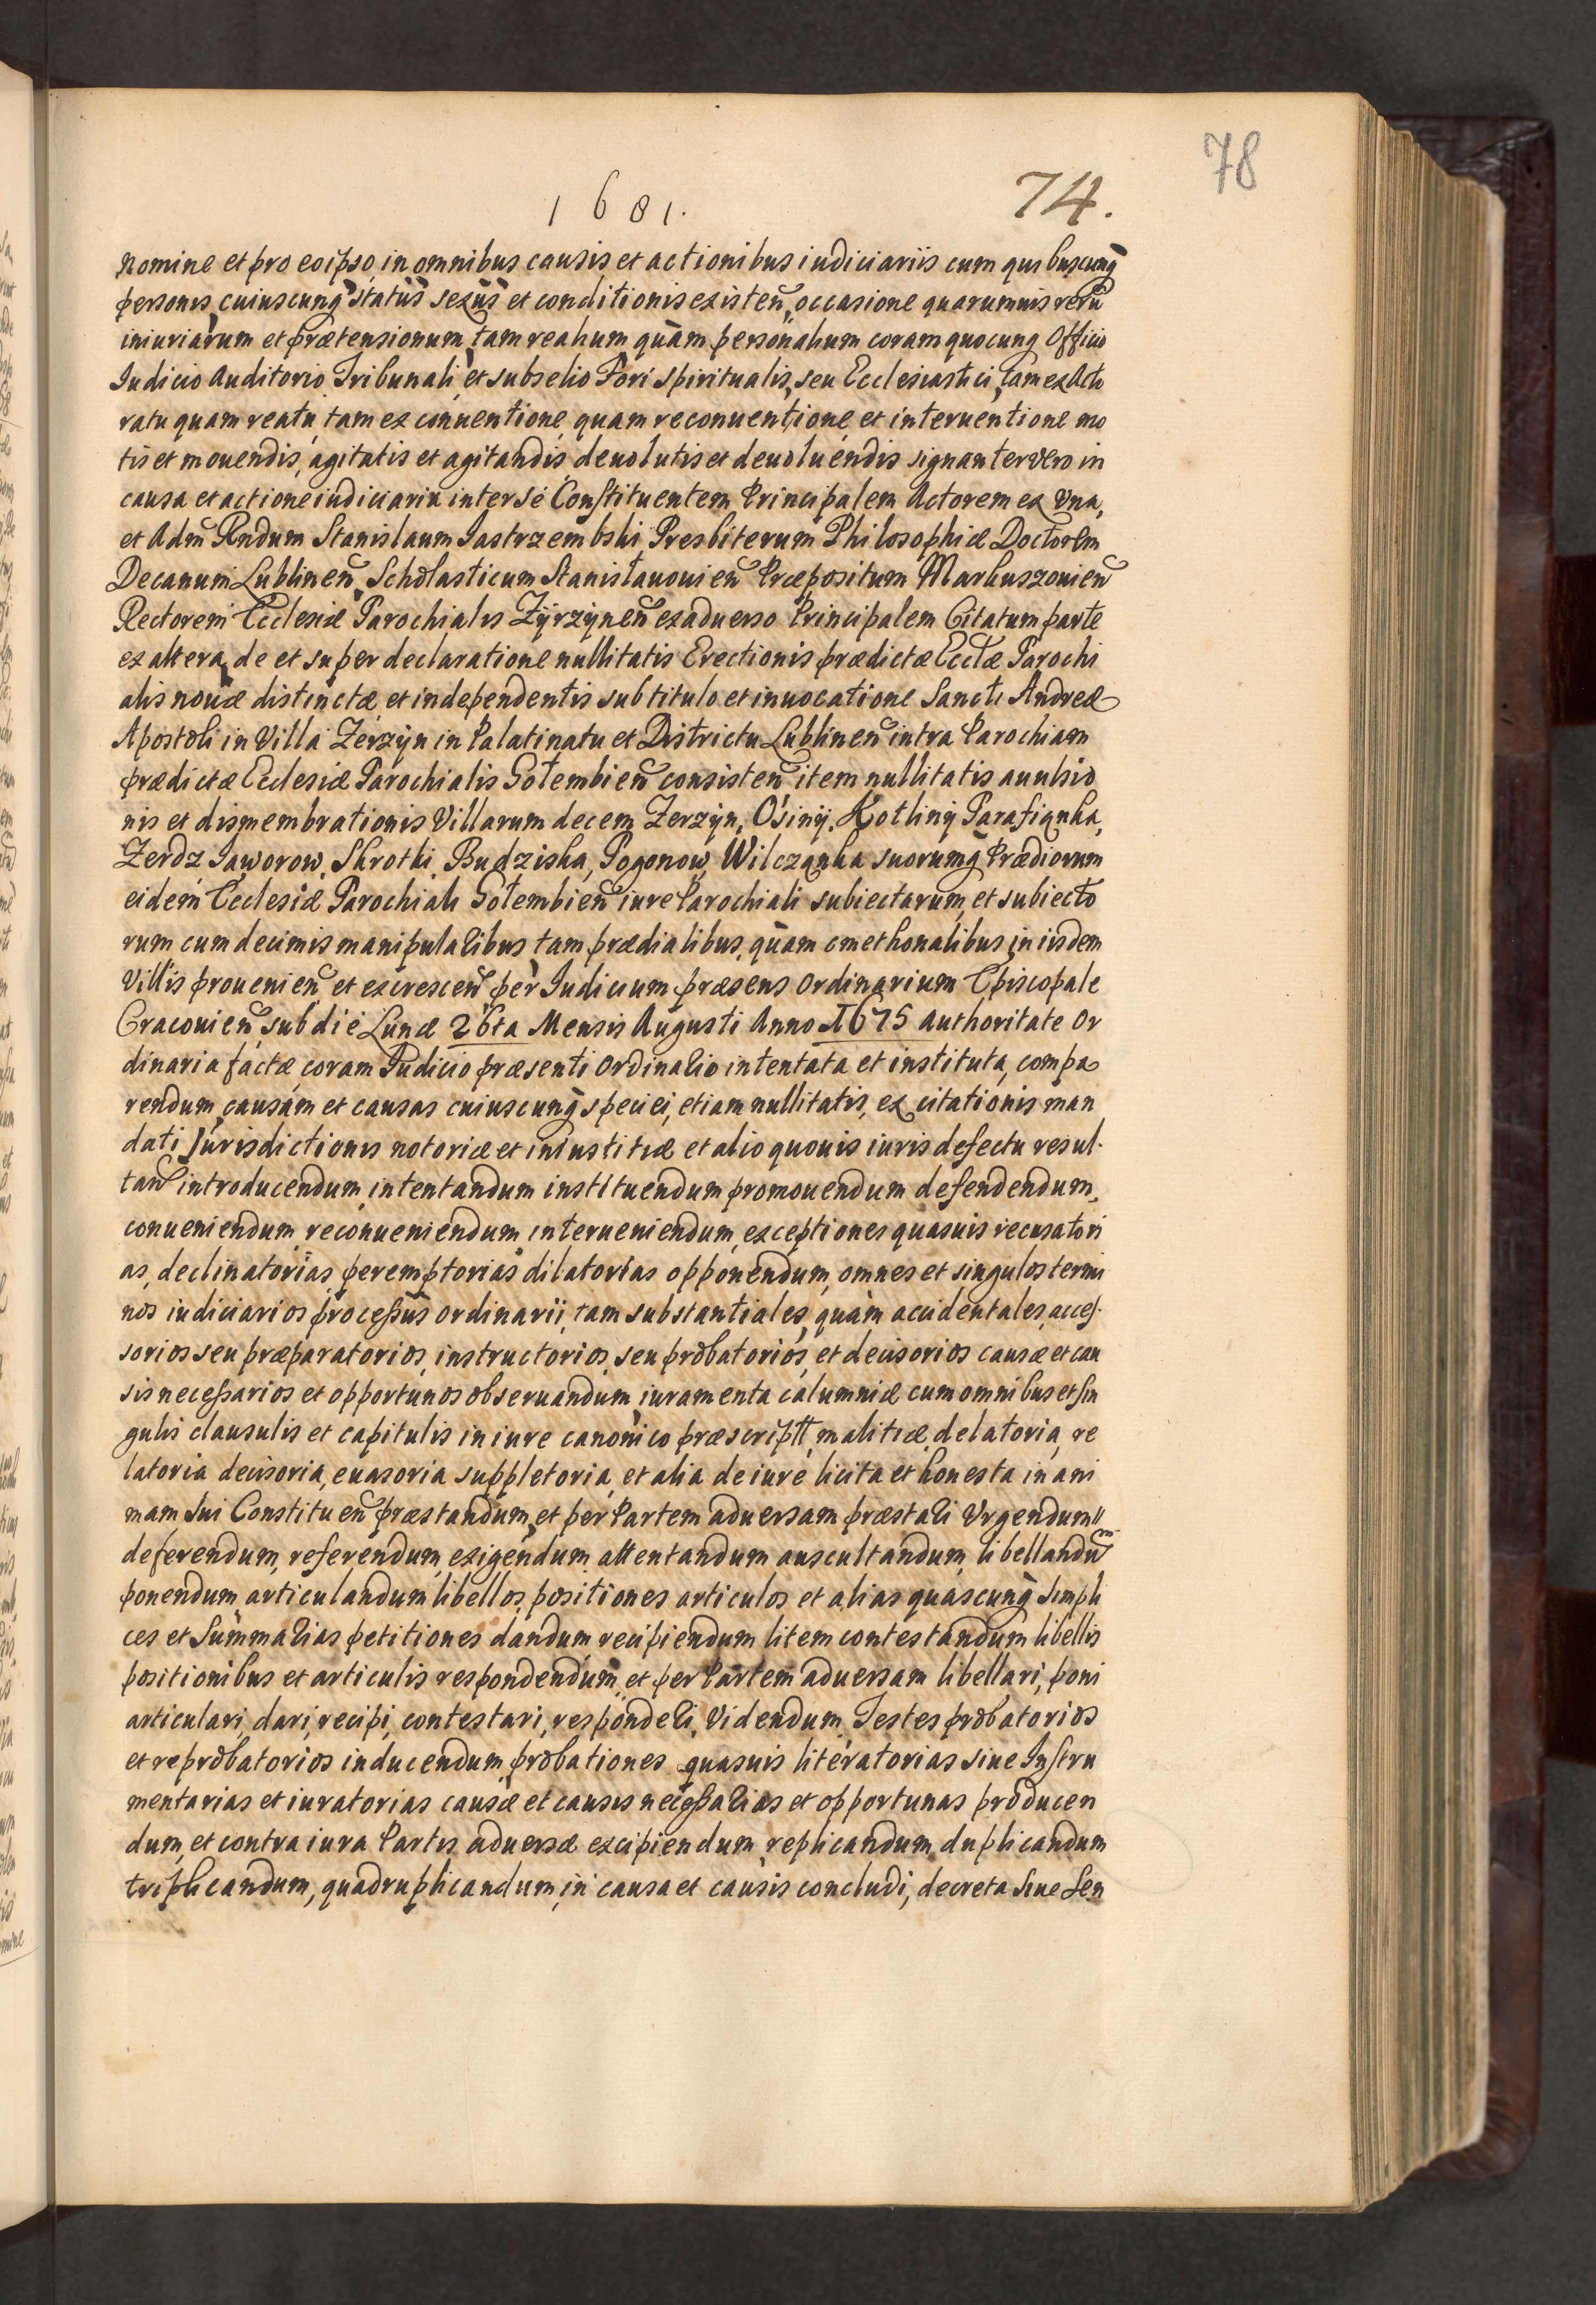 78
1681.
74.
nomine et pro eoipso, in omnibus causis et actionibus iudiciariis cum quibuscunq̃
personis, cuiuscunq̃ statûs sexûs et conditionis existeñ, occasione quarumuis rerũ
iniuriarum et prætensionum, tam realium quàm personalium coram quocunq̃ Officio
Iudicio Auditorio Tribunali et subselio Fori Spiritualis, seu Ecclesiastici, tam ex Acto
ratu quam reatu, tam ex conuentione, quam reconuentione, et interuentione mo
tis et mouendis, agitatis et agitandis, deuolutis et deuoluendis signanter vero in
causa et actione iudiciaria inter se Constituentem Principalem Actorem ex Vna,
et Adm̃ Rndum Stanislaum Jastrzembski Presbiterum Philosophiæ Doctorem
Decanum Lublineñ, Scholasticum Stanisłauouieñ Præpositum Markuszouieñ
Rectorem Ecclesiæ Parochialis Żÿrzÿneñ ex aduerso Principalem Citatum parte
ex altera, de et super declaratione nullitatis Erectionis prædictæ Ecclæ Parochi
alis nouæ distinctæ et independentis sub titulo et inuocatione Sancti Andreæ
Apostoli in Villa Żerzÿn in Palatinatu et Districtu Lublineñ intra Parochiam
prædictæ Ecclesiæ Parochialis Gołembieñ consisteñ item nullitatis auulsio
nis et dismembrationis Villarum decem Zerzÿn, Osinÿ, Kotliny Parafianka,
Zerdz Jaworow, Skrotki, Budziska, Pogonow, Wilczanka suorumq̃ Prædiorum
eidem Ecclesiæ Parochiali Gołembieñ iure Parochiali subiectarum, et subiecto
rum cum decimis manipularibus, tam prædialibus, quàm cmethonalibus, in iisdem
Villis proueniẽn et excresceñ per Iudicium præsens Ordinarium Episcopale
Cracouieñ sub die Lunæ 26ta Mensis Augusti Anno 1675 Authoritate Or
dinaria factæ, coram Iudicio præsenti Ordinario intentata et instituta, compa
rendum, causam et causas cuiuscunq̃ speciei, etiam nullitatis, ex citationis man
dati Jurisdictionis notoriæ et iniustitiæ et alio quouis iuris defectu resul-
tañ introducendum, intentandum instituendum promouendum defendendum,
conueniendum, reconueniendum, interueniendum, exceptiones quasuis recusatori
as, declinatorias, peremptorias dilatorias opponendum, omnes et singulos termi
nos iudiciarios processûs ordinarii, tam substantiales, quàm accidentales, acces-
sorios seu præparatorios, instructorios, seu probatorios, et decisorios causæ et cau
sis necessarios et opportunos obseruandum, iuramenta calumniæ cum omnibus et sin
gulis clausulis et capitulis in iure canonico præscriptt, malitiæ, delatoria, re
latoria decisoria, euasoria suppletoria, et alia de iure licita et honesta in ani
mam sui Constitueñ præstandum, et per Partem aduersam præstari Vrgendum
deferendum, referendum, exigendum, attentandum auscultandum, libellandũ
ponendum articulandum, libellos, positiones articulos et alias quascunq̃ simpli
ces et Summarias petitiones dandum recipiendum litem contestandum libellis
positionibus et articulis respondendum, et per Partem aduersam libellari, poni
articulari, dari, recipi, contestari, responderi, Videndum, Testes probatorios
et reprobatorios inducendum, probationes quasuis literatorias siue Instru
mentarias et iuratorias causæ et causis necessarias et opportunas producen
dum, et contra iura Partis aduersæ excipiendum, replicandum, duplicandum
triplicandum, quadruplicandum, in causa et causis concludi, decreta siue Sen